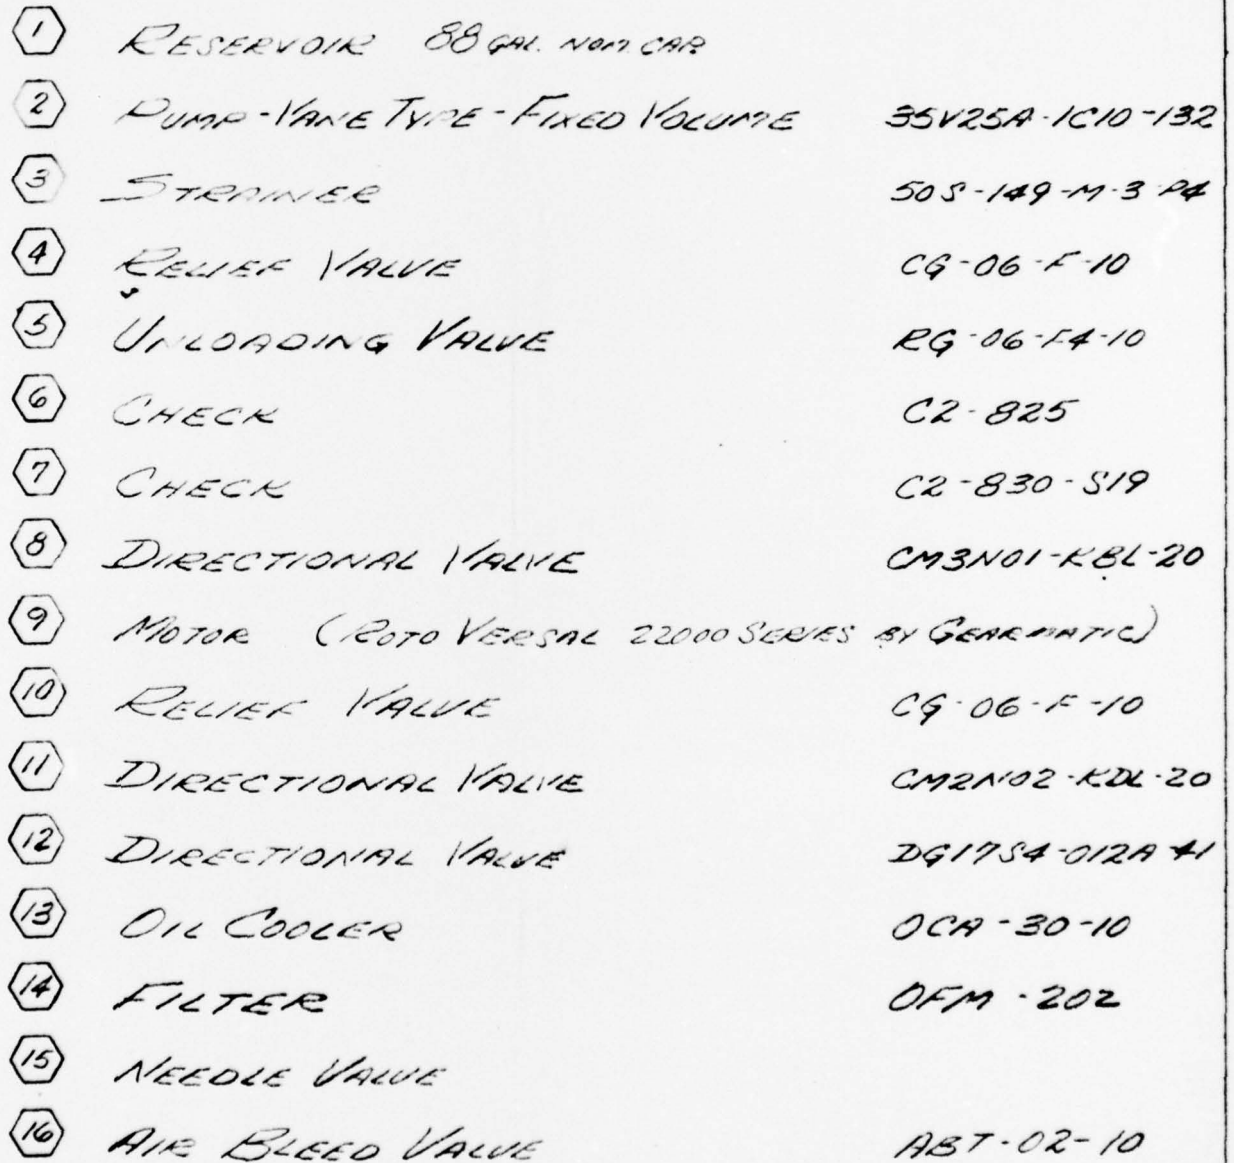 1 RESERVOIR 88 GAL. NOM. CAP.
2 PUMP-VANE TYPE-FIXED VOLUME 35V25A-1C10-132
3 STRAINER 50S-149-M-3-P4
4 RELIEF VALVE CG-06-F-10
5 UNLOADING VALVE RG-06-F4-10
6 CHECK C2-825
7 CHECK C2-830-S19
8 DIRECTIONAL VALVE CM3N01-KBL-20
9 MOTOR (ROTO VERSAL 22000 SERIES BY GEARMATIC)
10 RELIEF VALVE CG-06-F-10
11 DIRECTIONAL VALVE CM2N02-KDL-20
12 DIRECTIONAL VALVE DG17S4-012A-41
13 OIL COOLER OCA-30-10
14 FILTER OFM-202
15 NEEDLE VALVE
16 AIR BLEED VALVE ABT-02-10